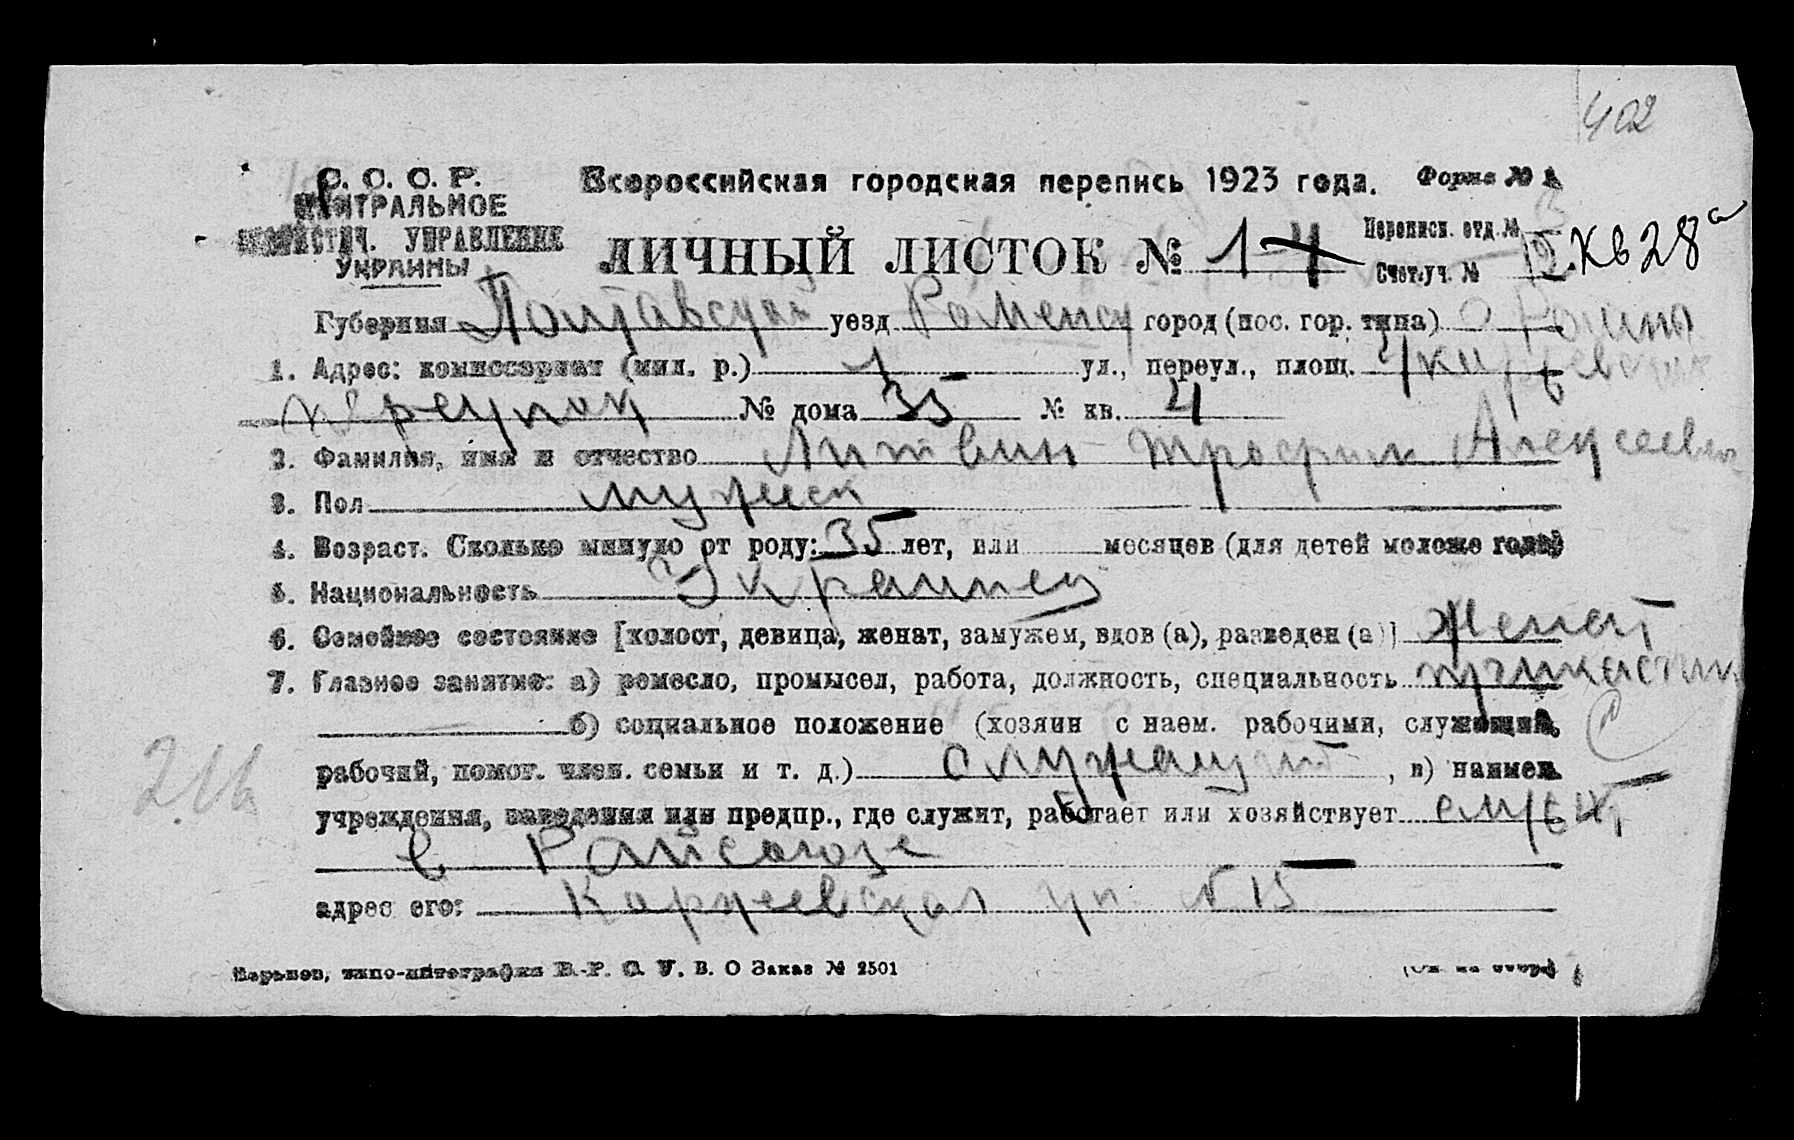 402
С. С. С. Р.
ЦЕНТРАЛЬНОЕ
СТАТИСТИЧ. УПРАВЛЕНИЕ
УКРАИНЫ
Всероссийская городская перепись 1923 года. Форма № 1
ЛИЧНЫЙ ЛИСТОК № 1 4
Переписн. отд. №
Счет.уч. № 12 Кв 28а
Губерния Полтавская уезд Роменск город (пос. гор. типа) Ромны
1. Адрес: комиссариат (мил. р.) 1 ул., переул., площ.
переулок № дома 35 № кв. 4
2. Фамилия, имя и отчество Литвин Трофим Алексеевич
3. Пол мужск
4. Возраст. Сколько минуло от роду: 35 лет, или месяцев (для детей моложе года)
5. Национальность Украинец
6. Семейное состояние [холост, девица, женат, замужем, вдов (а), разведен (а)] Женат
7. Главное занятие: а) ремесло, промысел, работа, должность, специальность
б) социальное положение (хозяин с наем. рабочими, служащий,
рабочий, помог. член. семьи и т. д.) служащий , в) наимен.
учреждения, заведения или предпр., где служит, работает или хозяйствует служит
в Райсоюзе
адрес его: ул. № 15
Харьков, типо-литография В.-Р. С. У. В. О Заказ № 2501
(См. на обор.)